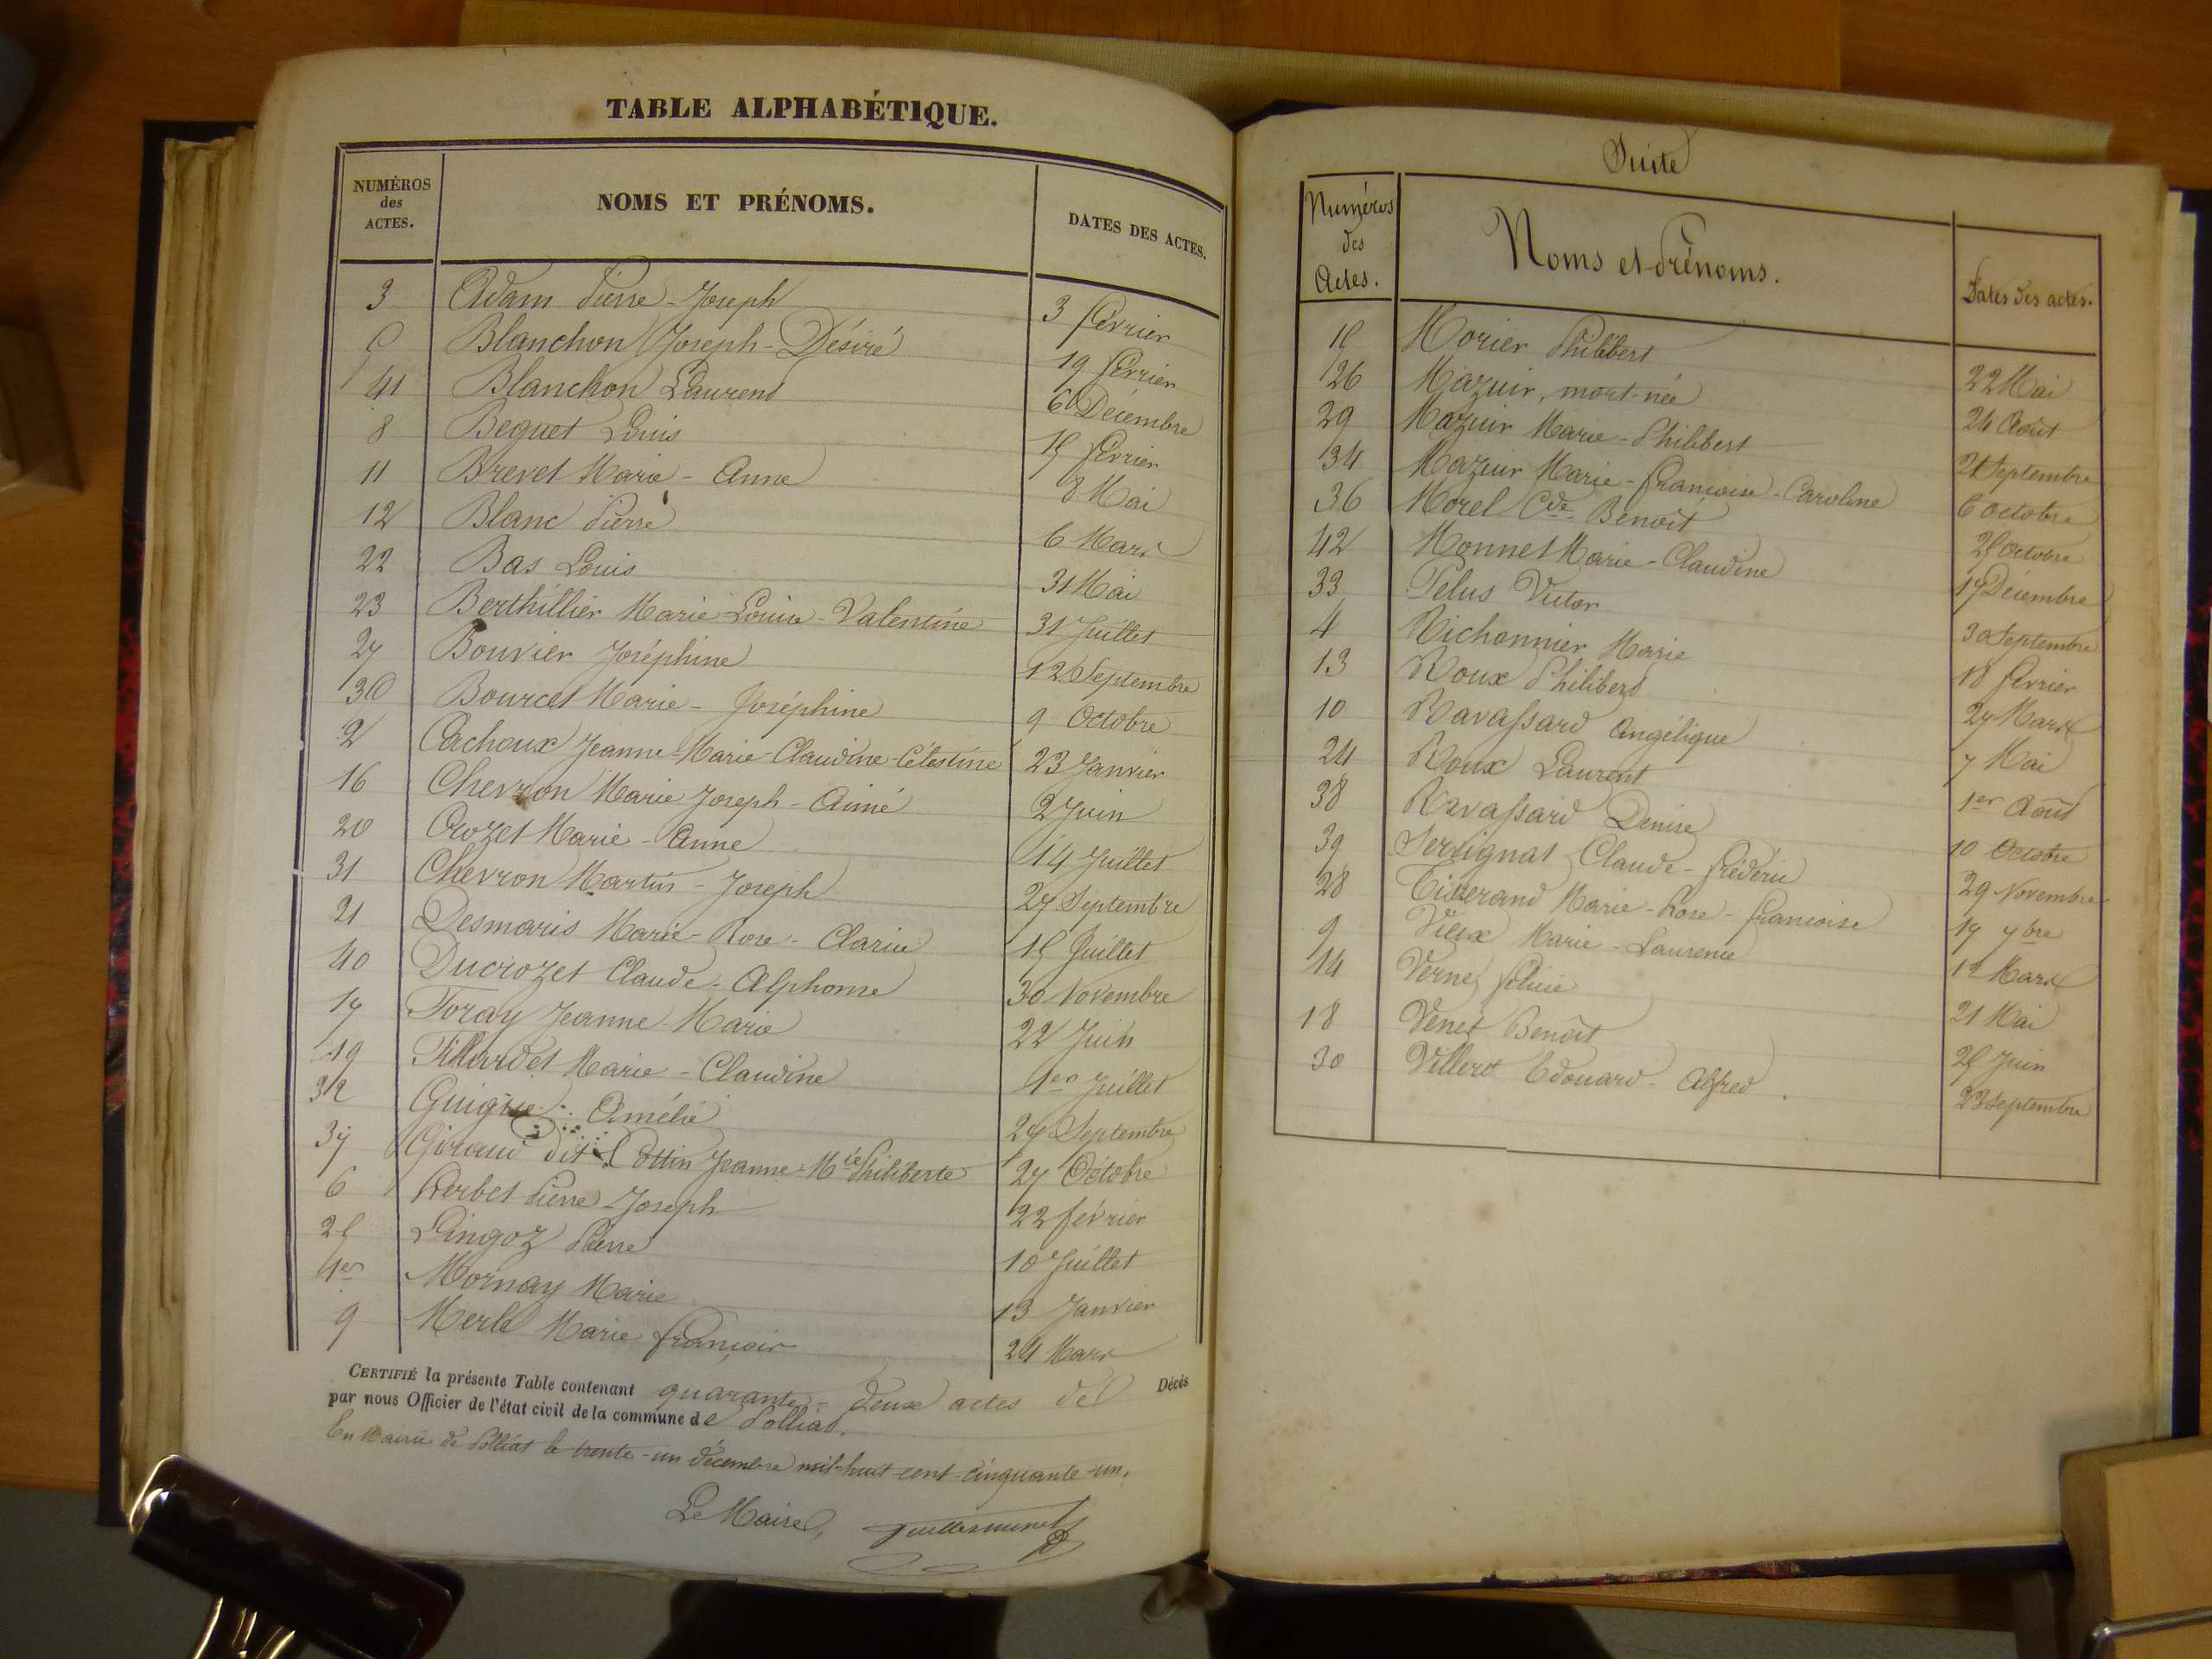 TABLE ALPHABÉTIQUE.
NUMÉROS des ACTES. NOMS ET PRÉNOMS. DATES DES ACTES.
3 Adam Pierre-Joseph 3 février
5 Blanchon Joseph-Désiré 19 février
41 Blanchon Laurent 6 Décembre
8 Beguet Louis 15 février
11 Brevet Marie-Anne 8 Mai
12 Blanc Pierre 6 Mars
22 Bas Louis 31 Mai
23 Berthillier Marie-Louise-Valentine 31 Juillet
27 Bouvier Joséphine 12 Septembre
30 Bourcet Marie-Joséphine 9 Octobre
2 Cachoux Jeanne-Marie-Claudine-Célestine 23 Janvier
16 Chevron Marie Joseph-Aimé 2 Juin
20 Crozet Marie-Anne 14 Juillet
31 Chevron Martin-Joseph 27 Septembre
21 Desmaris Marie-Rose-Clarice 15 Juillet
40 Ducrozet Claude-Alphonse 30 Novembre
17 Foray Jeanne-Marie 22 Juin
19 Fillardet Marie-Claudine 1er Juillet
32 Guigue Amélie 27 Septembre
37 Giraud dit Cottin Jeanne-Mie Philiberte 27 Octobre
6 Herbet Pierre-Joseph 22 février
25 Lingoz Pierre 10 Juillet
1er Mornay Marie 13 Janvier
9 Merle Marie françois 24 Mars
CERTIFIÉ la présente Table contenant quarante-deux actes de Décès
par nous Officier de l'état civil de la commune de Polliat.
En Mairie de Polliat le trente-un décembre mil-huit-cent-cinquante-un.
Le Maire, Guillerminet
Suite
Numéros des Actes. Noms et Prénoms. Dates des actes.
15 Morier Philibert 22 Mai
26 Mazuir, mort-née 24 Août
29 Mazuir Marie-Philibert 21 Septembre
34 Mazuir Marie-françoise-Caroline 6 Octobre
36 Morel Cde Benoît 25 Octobre
42 Monnet Marie-Claudine 17 Décembre
33 Pelus Victor 30 Septembre
4 Richonnier Marie 18 février
13 Roux Philibert 27 Mars
10 Ravassard Angélique 7 Mai
24 Roux Laurent 1er Août
38 Ravassard Denise 10 Octobre
39 Servignat Claude-frédéric 29 Novembre
28 Tisserand Marie-Rose-françoise 17 7bre
9 Vieux Marie-Laurence 12 Mars
14 Verne félicie 21 Mai
18 Venet Benoît 25 Juin
30 Villeret Edouard-Alfred. 23 Septembre